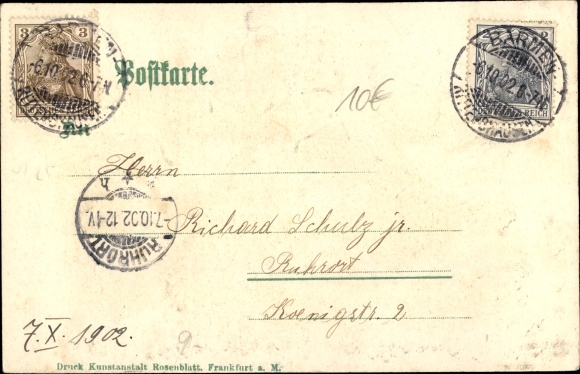 3
BARMEN
6.10.02.6-7N
RITTERSHAUSEN
Postkarte.
10€
BARMEN
6.10.02.6-7N
RITTERSHAUSEN
REICH
An
Herrn
Richard Schulz jr.
Ruhrort
Koenigstr. 2
RUHRORT
7.10.02.12-1V.
h
7.X.1902.
9-
Druck Kunstanstalt Rosenblatt. Frankfurt a. M.